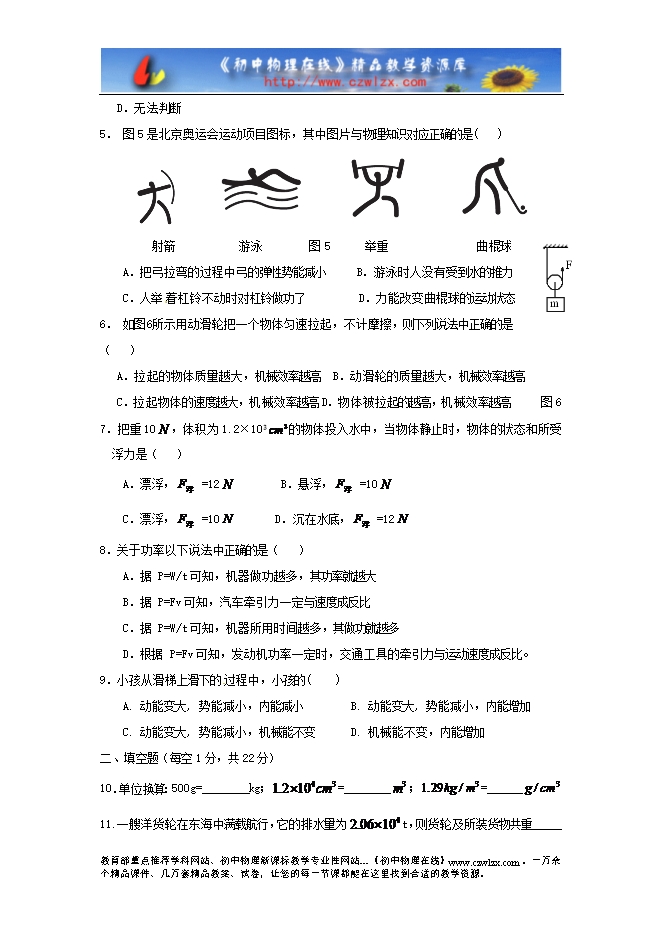 《初中物理在线》精品教学资源库
http://www.czwlzx.com
D．无法判断
5． 图5是北京奥运会运动项目图标，其中图片与物理知识对应正确的是( )
射箭 游泳 图5 举重 曲棍球
F
m
A．把弓拉弯的过程中弓的弹性势能减小 B．游泳时人没有受到水的推力
C．人举着杠铃不动时对杠铃做功了 D．力能改变曲棍球的运动状态
6． 如图6所示用动滑轮把一个物体匀速拉起，不计摩擦，则下列说法中正确的是
( )
A．拉起的物体质量越大，机械效率越高 B．动滑轮的质量越大，机械效率越高
C．拉起物体的速度越大，机械效率越高 D．物体被拉起的越高，机械效率越高 图6
7．把重10N，体积为1.2×10³cm³的物体投入水中，当物体静止时，物体的状态和所受
浮力是（ ）
A．漂浮，F浮 =12N B．悬浮，F浮 =10N
C．漂浮，F浮 =10N D．沉在水底，F浮 =12N
8．关于功率以下说法中正确的是（ ）
A．据 P=W/t可知，机器做功越多，其功率就越大
B．据 P=Fv可知，汽车牵引力一定与速度成反比
C．据 P=W/t可知，机器所用时间越多，其做功就越多
D．根据 P=Fv可知，发动机功率一定时，交通工具的牵引力与运动速度成反比。
9．小孩从滑梯上滑下的过程中，小孩的( )
A. 动能变大, 势能减小，内能减小 B. 动能变大, 势能减小，内能增加
C. 动能变大, 势能减小，机械能不变 D. 机械能不变，内能增加
二、填空题（每空1分，共22分）
10．单位换算：500g=________kg；1.2×10⁴cm³=________m³；1.29kg/m³=______g/cm³
11．一艘洋货轮在东海中满载航行，它的排水量为2.06×10⁴t，则货轮及所装货物共重_____
教育部重点推荐学科网站、初中物理新课标教学专业性网站---《初中物理在线》www.czwlzx.com 。一万余
个精品课件、几万套精品教案、试卷，让您的每一节课都能在这里找到合适的教学资源。